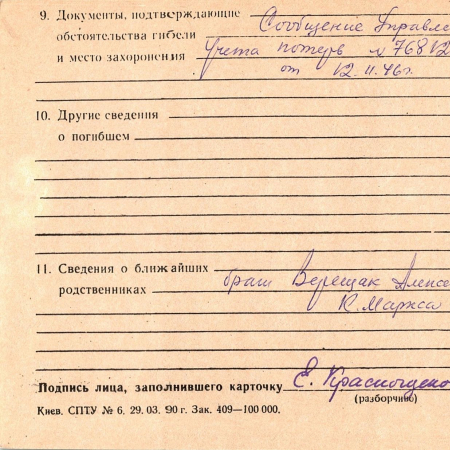 9. Документы, подтверждающие Сообщение Управле
обстоятельства гибели Учета потерь № 76812
и место захоронения от 12.11.46г.
10. Другие сведения
о погибшем
11. Сведения о ближайших брат Верещак Алексе
родственниках К. Маркса
Подпись лица, заполнившего карточку Е. Краснощеко
(разборчиво)
Киев. СПТУ № 6. 29. 03. 90 г. Зак. 409—100 000.